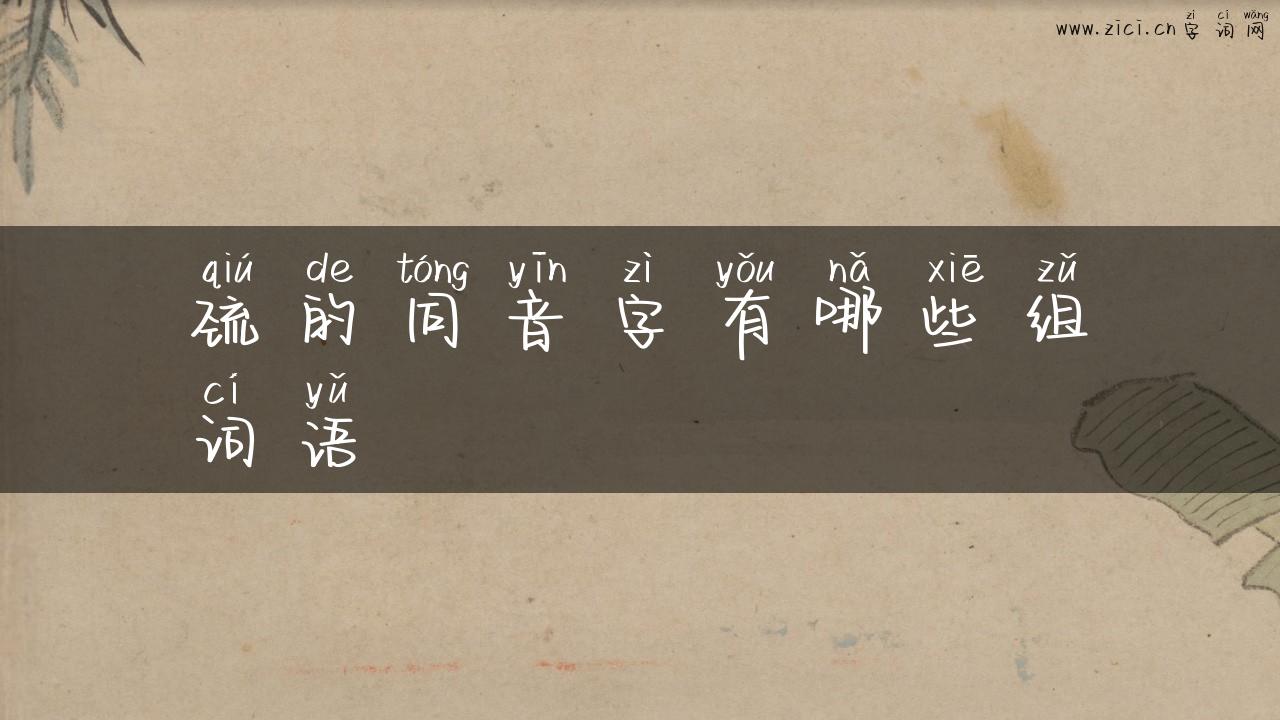 zì cí wǎng
www.zici.cn 字词网
qiú de tóng yīn zì yǒu nǎ xiē zǔ
巯的同音字有哪些组
cí yǔ
词语